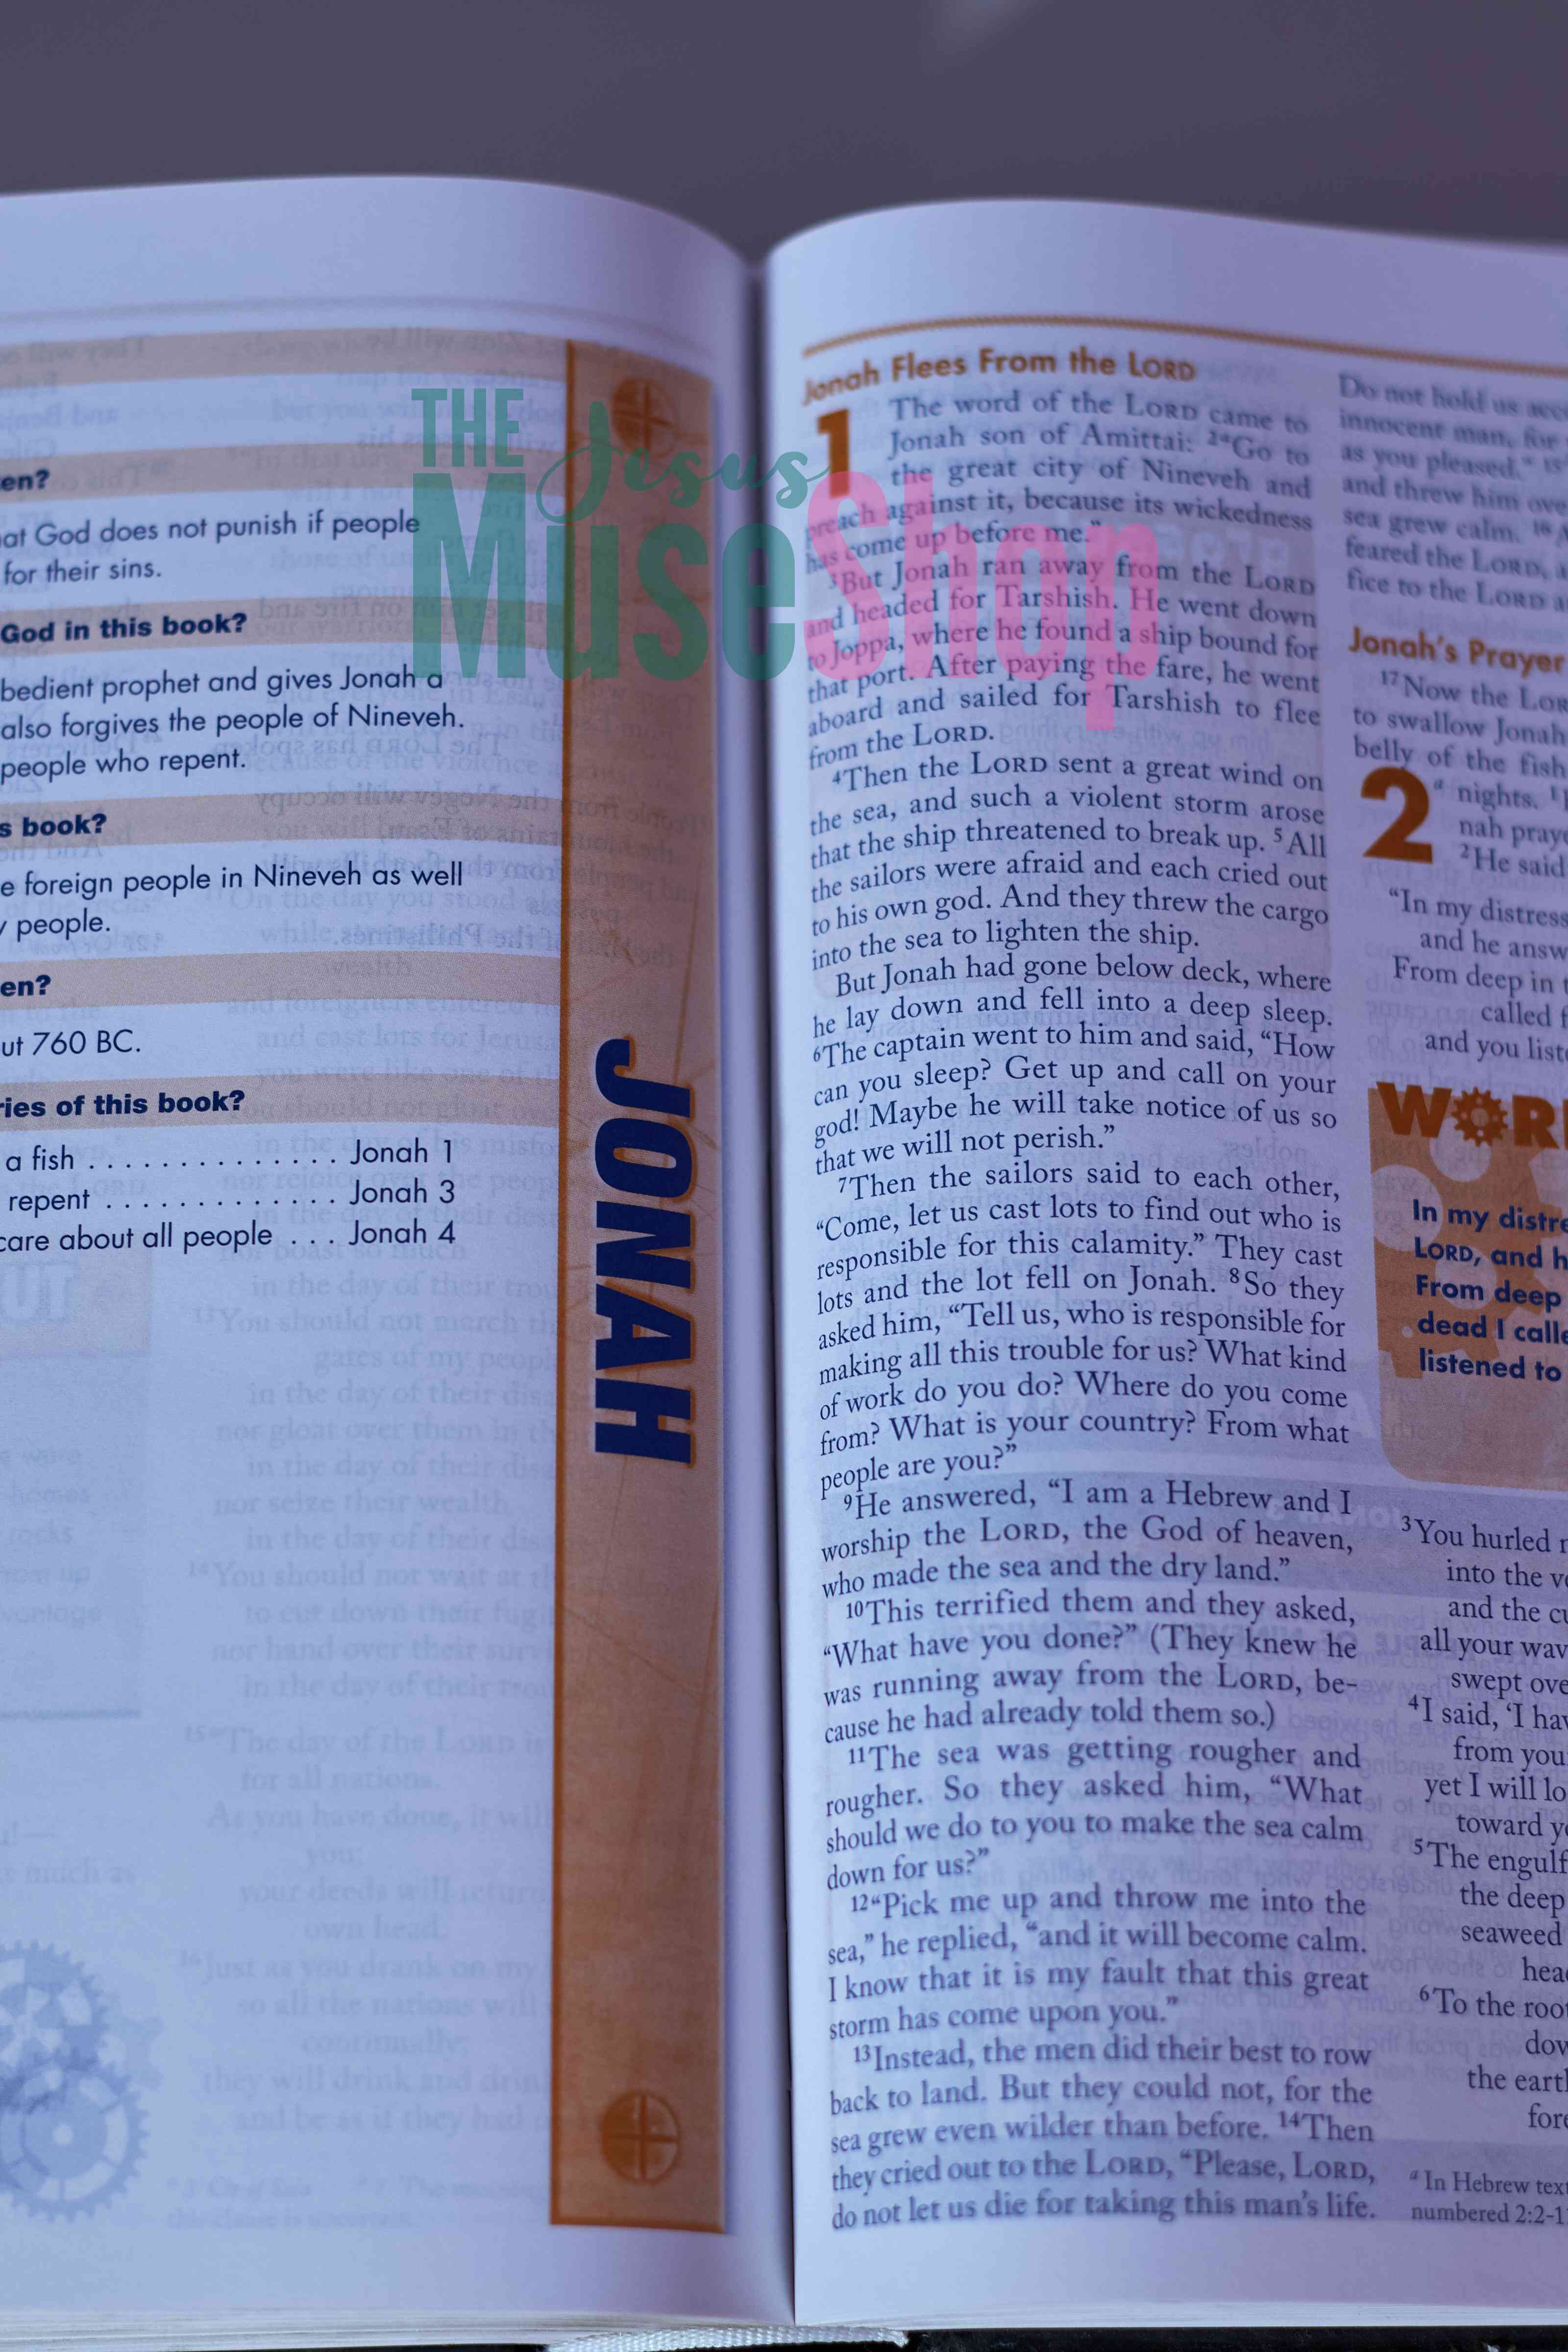 THE Jesus
MuseShop
en?
at God does not punish if people
for their sins.
God in this book?
bedient prophet and gives Jonah a
also forgives the people of Nineveh.
people who repent.
s book?
e foreign people in Nineveh as well
y people.
en?
ut 760 BC.
ries of this book?
a fish . . . . . . . . . . . . . . Jonah 1
repent . . . . . . . . . . . . . Jonah 3
care about all people . . . Jonah 4
JONAH
Jonah Flees From the LORD
1 The word of the LORD came to
Jonah son of Amittai: 2“Go to
the great city of Nineveh and
preach against it, because its wickedness
has come up before me.”
3But Jonah ran away from the LORD
and headed for Tarshish. He went down
to Joppa, where he found a ship bound for
that port. After paying the fare, he went
aboard and sailed for Tarshish to flee
from the LORD.
4Then the LORD sent a great wind on
the sea, and such a violent storm arose
that the ship threatened to break up. 5All
the sailors were afraid and each cried out
to his own god. And they threw the cargo
into the sea to lighten the ship.
But Jonah had gone below deck, where
he lay down and fell into a deep sleep.
6The captain went to him and said, “How
can you sleep? Get up and call on your
god! Maybe he will take notice of us so
that we will not perish.”
7Then the sailors said to each other,
“Come, let us cast lots to find out who is
responsible for this calamity.” They cast
lots and the lot fell on Jonah. 8So they
asked him, “Tell us, who is responsible for
making all this trouble for us? What kind
of work do you do? Where do you come
from? What is your country? From what
people are you?”
9He answered, “I am a Hebrew and I
worship the LORD, the God of heaven,
who made the sea and the dry land.”
10This terrified them and they asked,
“What have you done?” (They knew he
was running away from the LORD, be-
cause he had already told them so.)
11The sea was getting rougher and
rougher. So they asked him, “What
should we do to you to make the sea calm
down for us?”
12“Pick me up and throw me into the
sea,” he replied, “and it will become calm.
I know that it is my fault that this great
storm has come upon you.”
13Instead, the men did their best to row
back to land. But they could not, for the
sea grew even wilder than before. 14Then
they cried out to the LORD, “Please, LORD,
do not let us die for taking this man’s life.
Do not hold us acc
innocent man, for
as you pleased.” 15
and threw him ove
sea grew calm. 16A
feared the LORD, a
fice to the LORD a
Jonah’s Prayer
17Now the LOR
to swallow Jonah
belly of the fish
2 a nights. 1
nah praye
2He said
“In my distress
and he answ
From deep in t
called f
and you liste
WOR
In my distre
LORD, and h
From deep
dead I calle
listened to
3You hurled
into the ve
and the cu
all your wav
swept ove
4I said, ‘I hav
from you
yet I will lo
toward yo
5The engulf
the deep
seaweed
hea
6To the root
dow
the earth
fore
a In Hebrew text
numbered 2:2-1